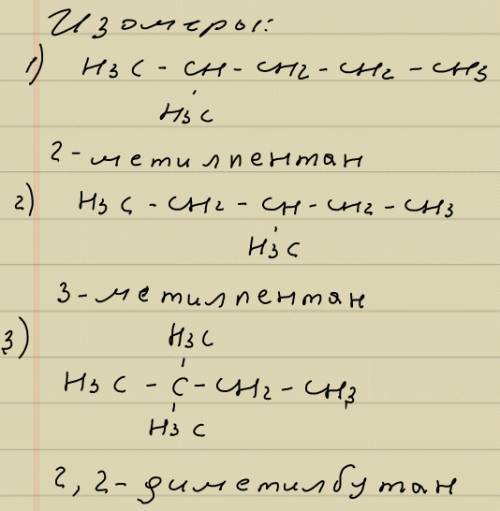 Изомеры:
1) H3C - CH - CH2 - CH2 - CH3
H3C
2-метилпентан
2) H3C - CH2 - CH - CH2 - CH3
H3C
3-метилпентан
3)
H3C
H3C - C - CH2 - CH3
H3C
2,2-диметилбутан